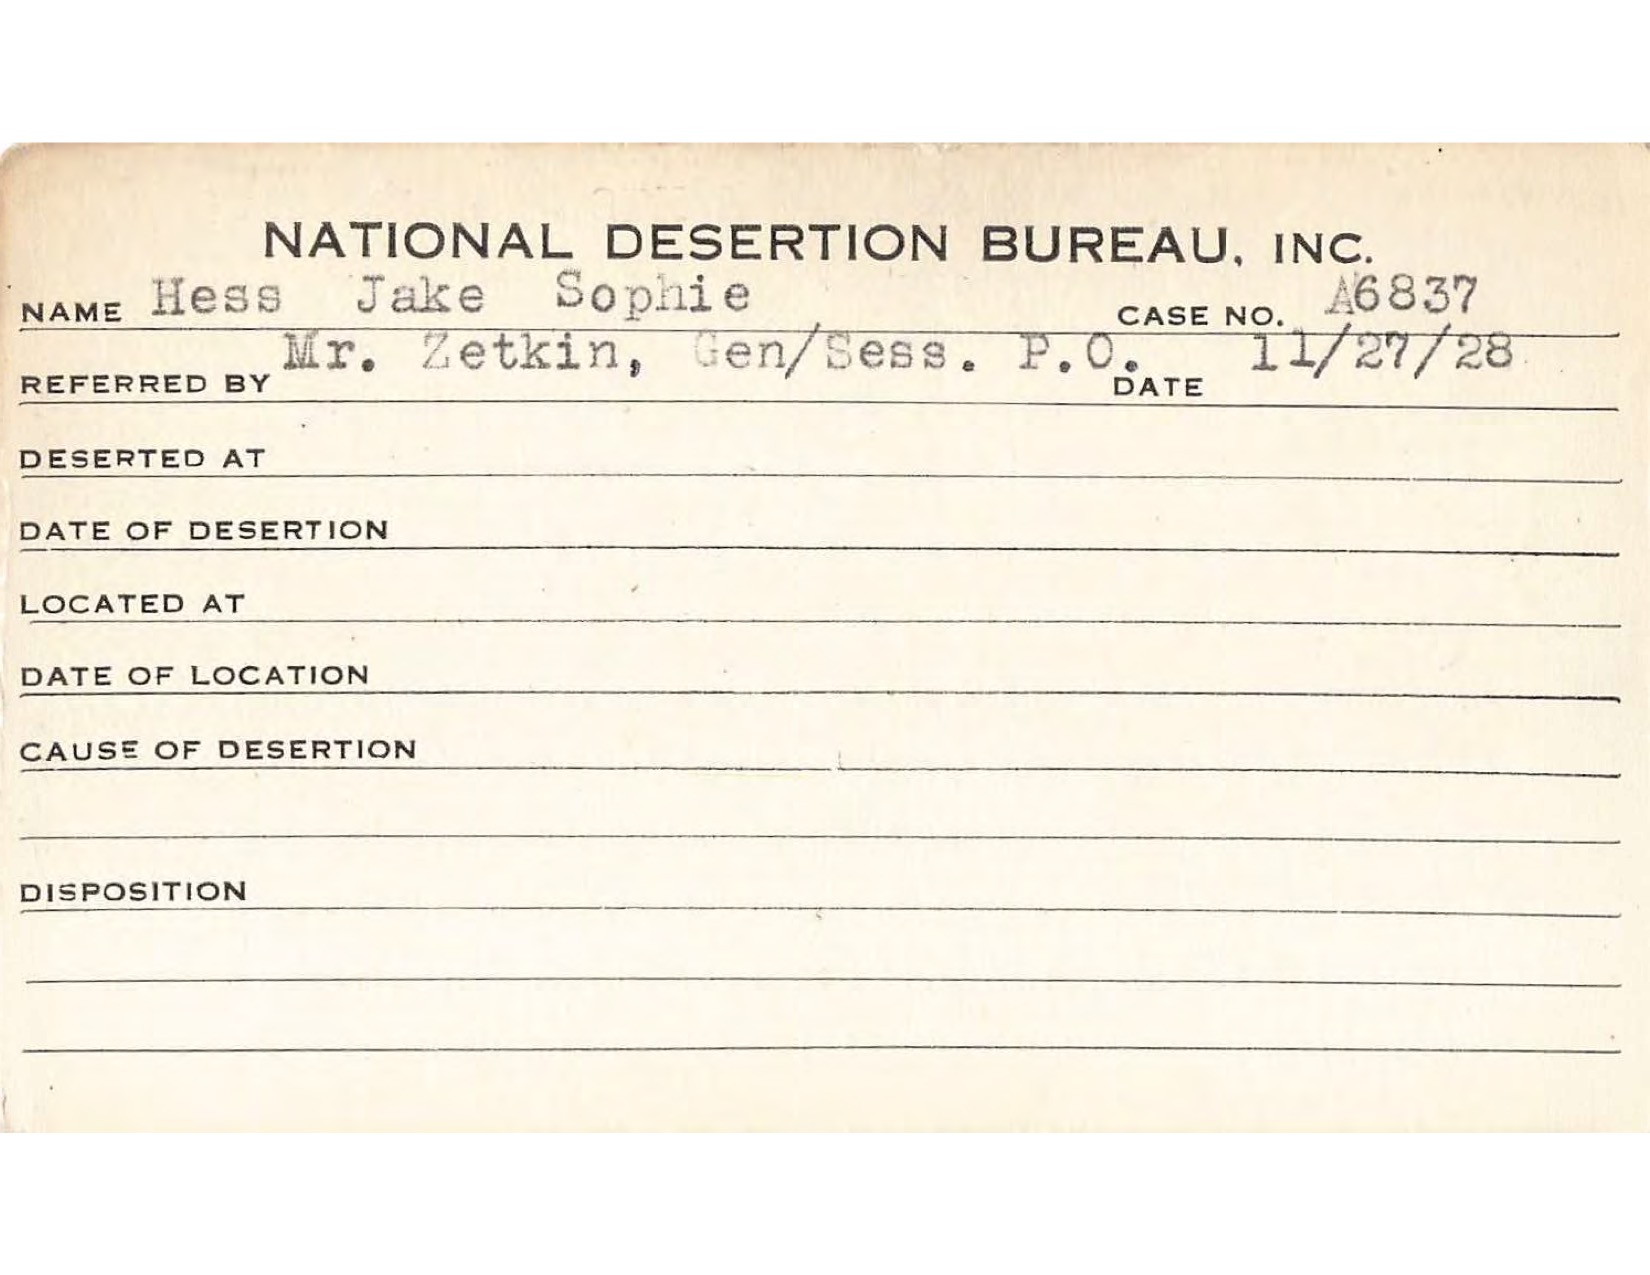 NATIONAL DESERTION BUREAU, INC.
NAME Hess Jake Sophie CASE NO. A6837
REFERRED BY Mr. Zetkin, Gen/Sess. P.O. DATE 11/27/28
DESERTED AT
DATE OF DESERTION
LOCATED AT
DATE OF LOCATION
CAUSE OF DESERTION
DISPOSITION